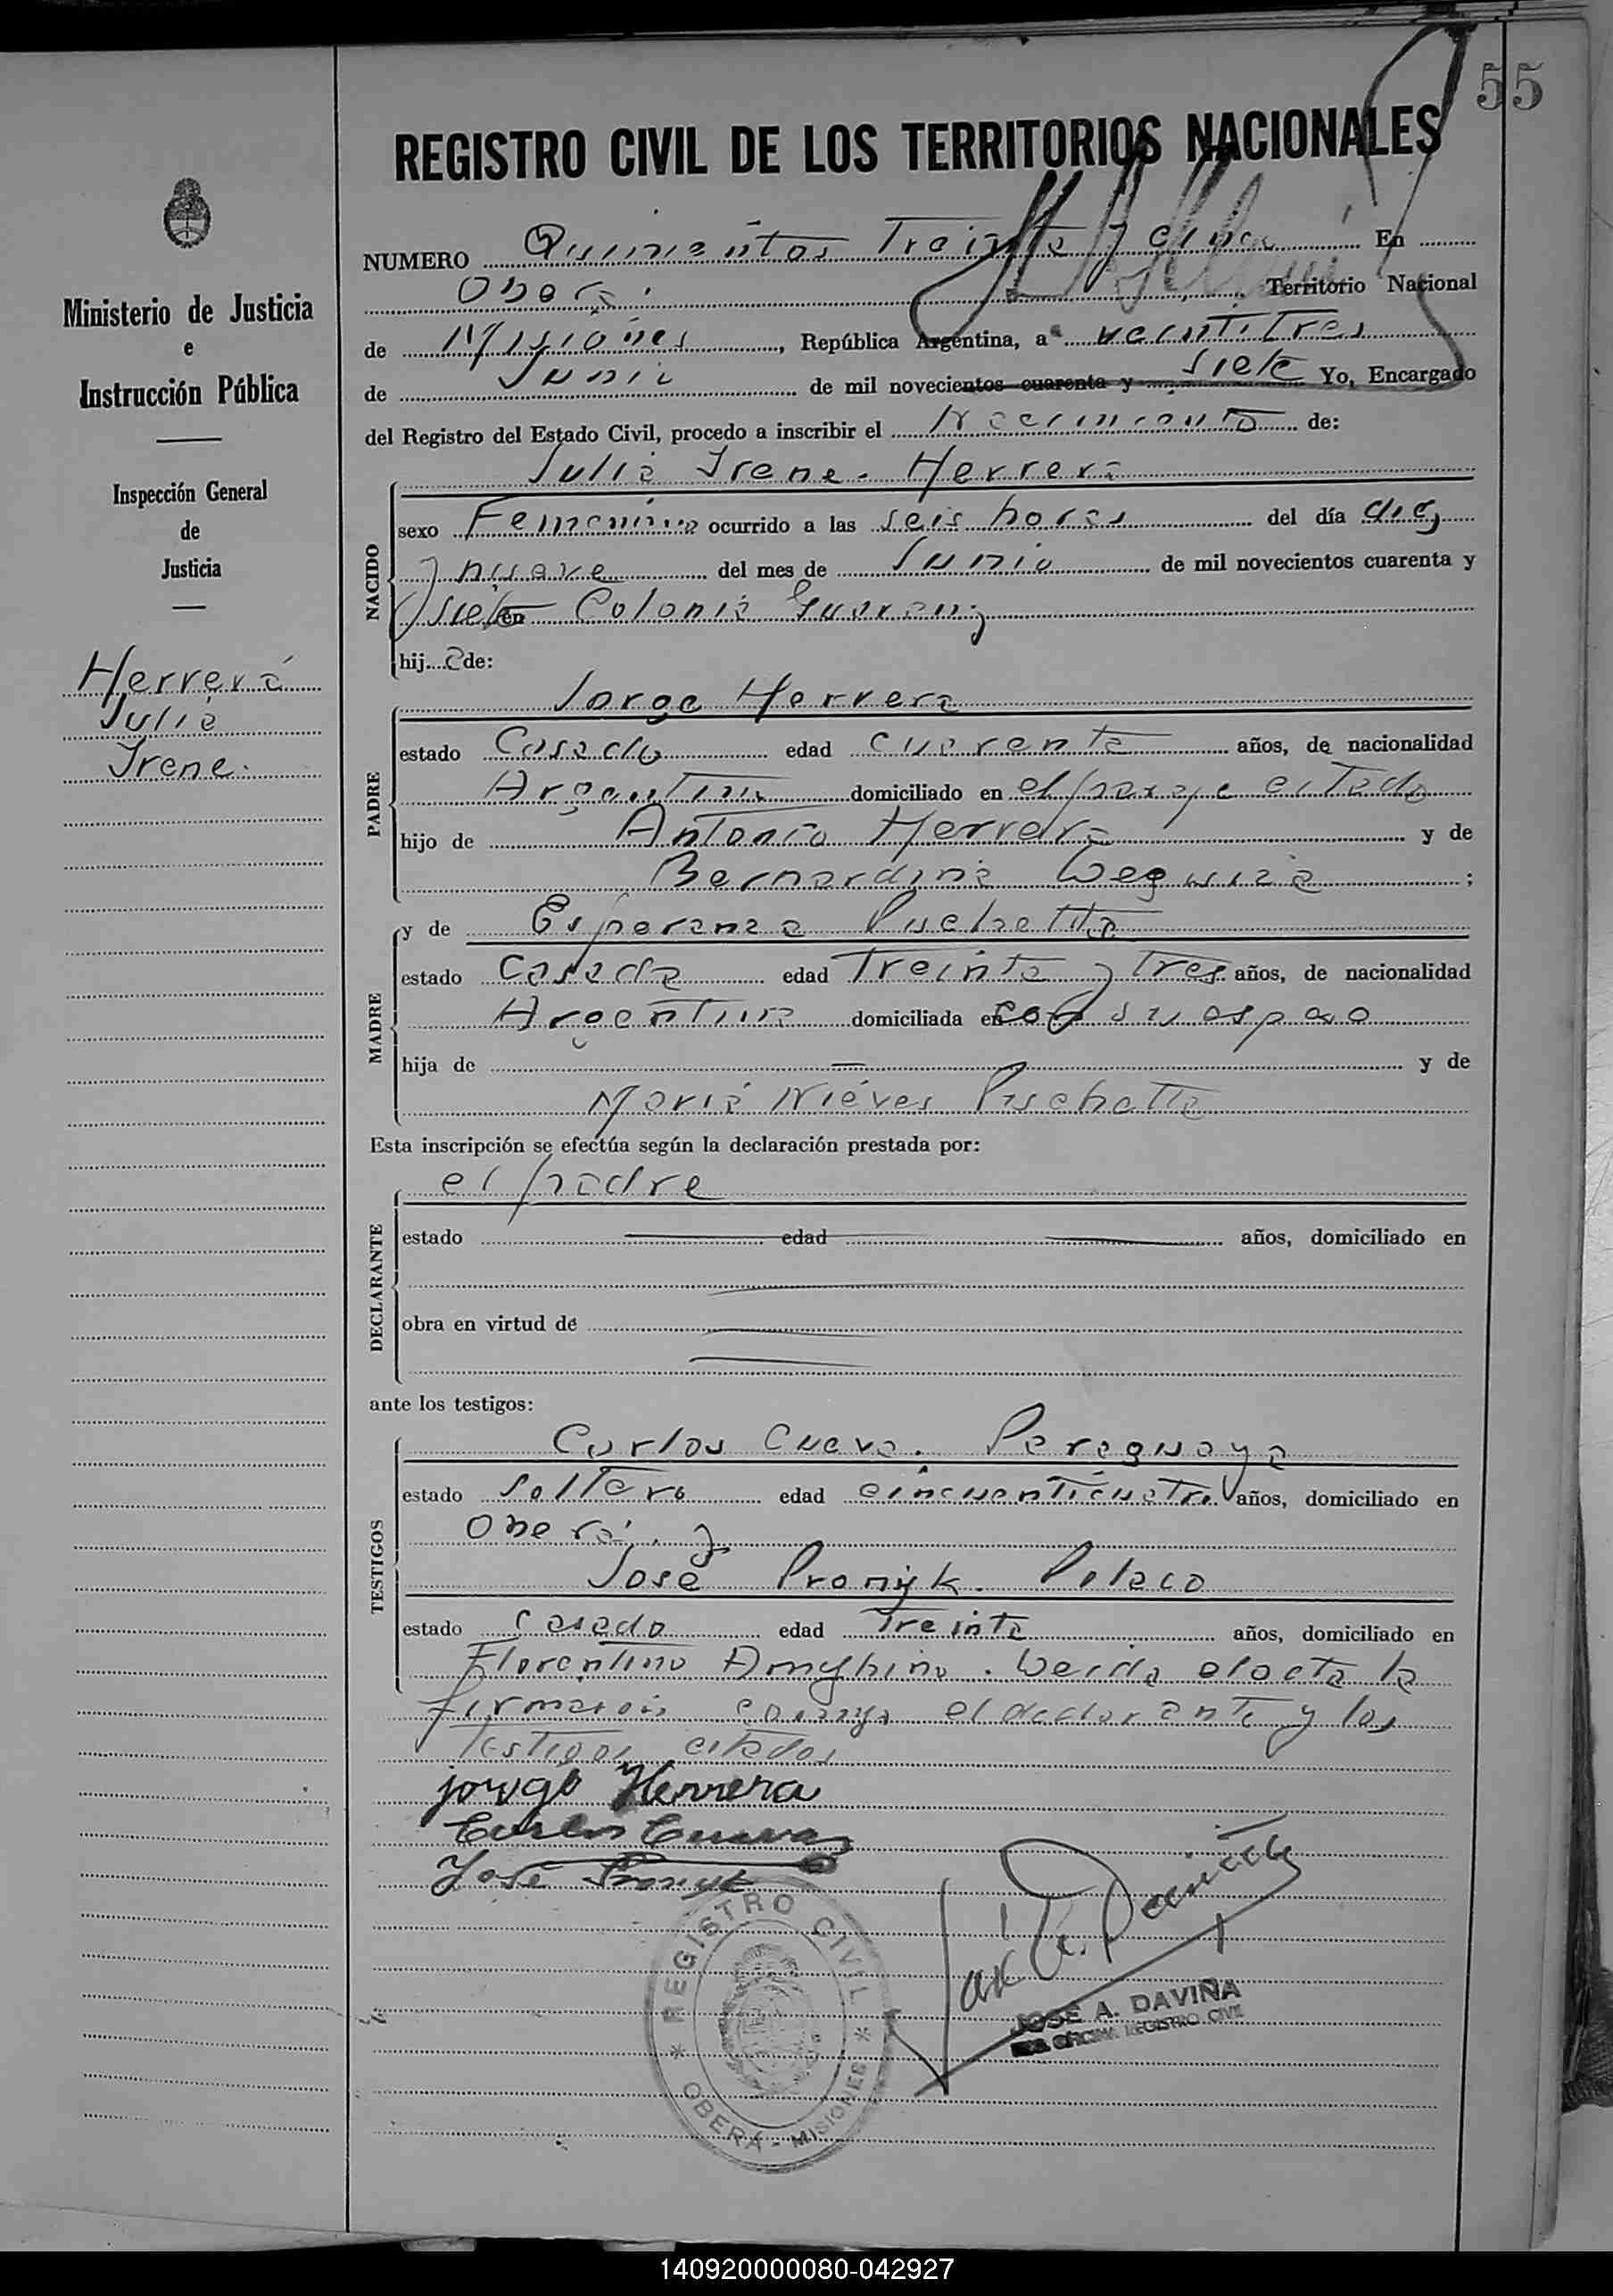 55
REGISTRO CIVIL DE LOS TERRITORIOS NACIONALES
Ministerio de Justicia
e
Instrucción Pública
Inspección General
de
Justicia
Herrera
Julia
Irene
NUMERO Quinientos Treinta y cinco En
Oberá Territorio Nacional
de Misiones, República Argentina, a veintitres
de Junio de mil novecientos cuarenta y siete Yo, Encargado
del Registro del Estado Civil, procedo a inscribir el Nacimiento de:
NACIDO
Julia Irene Herrera
sexo Femenino ocurrido a las seis horas del día diez
y nueve del mes de Junio de mil novecientos cuarenta y
siete en Colonia Guarani
hija de:
PADRE
Jorge Herrera
estado Casado edad cuarenta años, de nacionalidad
Argentina domiciliado en el paraje citado
hijo de Antonio Herrera y de
Bernardina ;
MADRE
y de Esperanza
estado Casada edad Treinta y Tres años, de nacionalidad
Argentina domiciliada en con su esposo
hija de — y de
Maria Nieves
Esta inscripción se efectúa según la declaración prestada por:
DECLARANTE
el padre
estado edad años, domiciliado en
obra en virtud de
ante los testigos:
TESTIGOS
Carlos Cueva. Paraguayo
estado soltero edad cincuenticuatro años, domiciliado en
Oberá y
José Pronyk. Polaco
estado casado edad Treinta años, domiciliado en
Florentino Ameghino. Leida el acta la
firmaron conmigo el declarante y los
Testigos citados
jorge Herrera
Carlos Cueva
José Pronyk
REGISTRO CIVIL
OBERÁ - MISIONES
JOSE A. DAVIÑA
OFICINA REGISTRO CIVIL
140920000080-042927